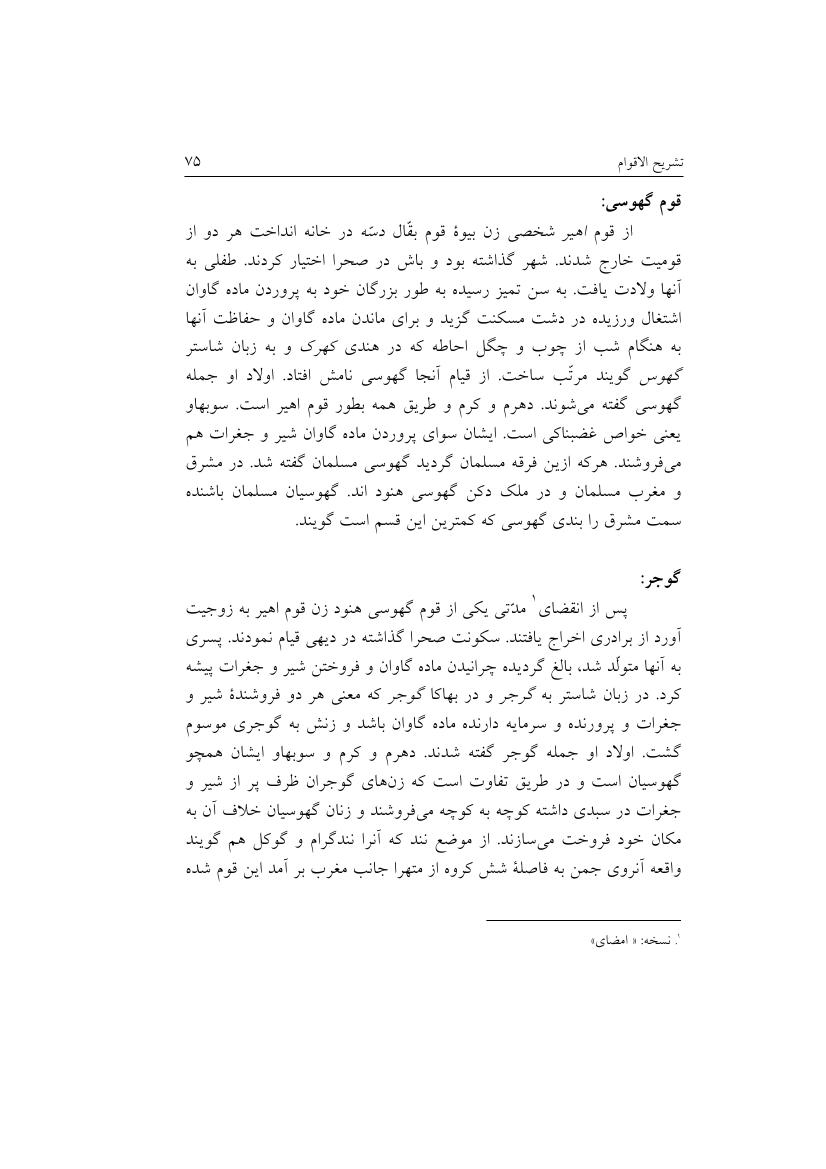 تشریح الاقوام ۷۵
قوم گهوسی:
از قوم اهیر شخصی زن بیوۀ قوم بقّال دسّه در خانه انداخت هر دو از
قومیت خارج شدند. شهر گذاشته بود و باش در صحرا اختیار کردند. طفلی به
آنها ولادت یافت. به سن تمیز رسیده به طور بزرگان خود به پروردن ماده گاوان
اشتغال ورزیده در دشت مسکنت گزید و برای ماندن ماده گاوان و حفاظت آنها
به هنگام شب از چوب و چگل احاطه که در هندی کهرک و به زبان شاستر
گهوس گویند مرتّب ساخت. از قیام آنجا گهوسی نامش افتاد. اولاد او جمله
گهوسی گفته می‌شوند. دهرم و کرم و طریق همه بطور قوم اهیر است. سوبهاو
یعنی خواص غضبناکی است. ایشان سوای پروردن ماده گاوان شیر و جغرات هم
می‌فروشند. هرکه ازین فرقه مسلمان گردید گهوسی مسلمان گفته شد. در مشرق
و مغرب مسلمان و در ملک دکن گهوسی هنود اند. گهوسیان مسلمان باشنده
سمت مشرق را بندی گهوسی که کمترین این قسم است گویند.
گوجر:
پس از انقضای۱ مدّتی یکی از قوم گهوسی هنود زن قوم اهیر به زوجیت
آورد از برادری اخراج یافتند. سکونت صحرا گذاشته در دیهی قیام نمودند. پسری
به آنها متولّد شد، بالغ گردیده چرانیدن ماده گاوان و فروختن شیر و جغرات پیشه
کرد. در زبان شاستر به گرجر و در بهاکا گوجر که معنی هر دو فروشندۀ شیر و
جغرات و پرورنده و سرمایه دارنده ماده گاوان باشد و زنش به گوجری موسوم
گشت. اولاد او جمله گوجر گفته شدند. دهرم و کرم و سوبهاو ایشان همچو
گهوسیان است و در طریق تفاوت است که زن‌های گوجران ظرف پر از شیر و
جغرات در سبدی داشته کوچه به کوچه می‌فروشند و زنان گهوسیان خلاف آن به
مکان خود فروخت می‌سازند. از موضع نند که آنرا نندگرام و گوکل هم گویند
واقعه آنروی جمن به فاصلۀ شش کروه از متهرا جانب مغرب بر آمد این قوم شده
۱. نسخه: « امضای»